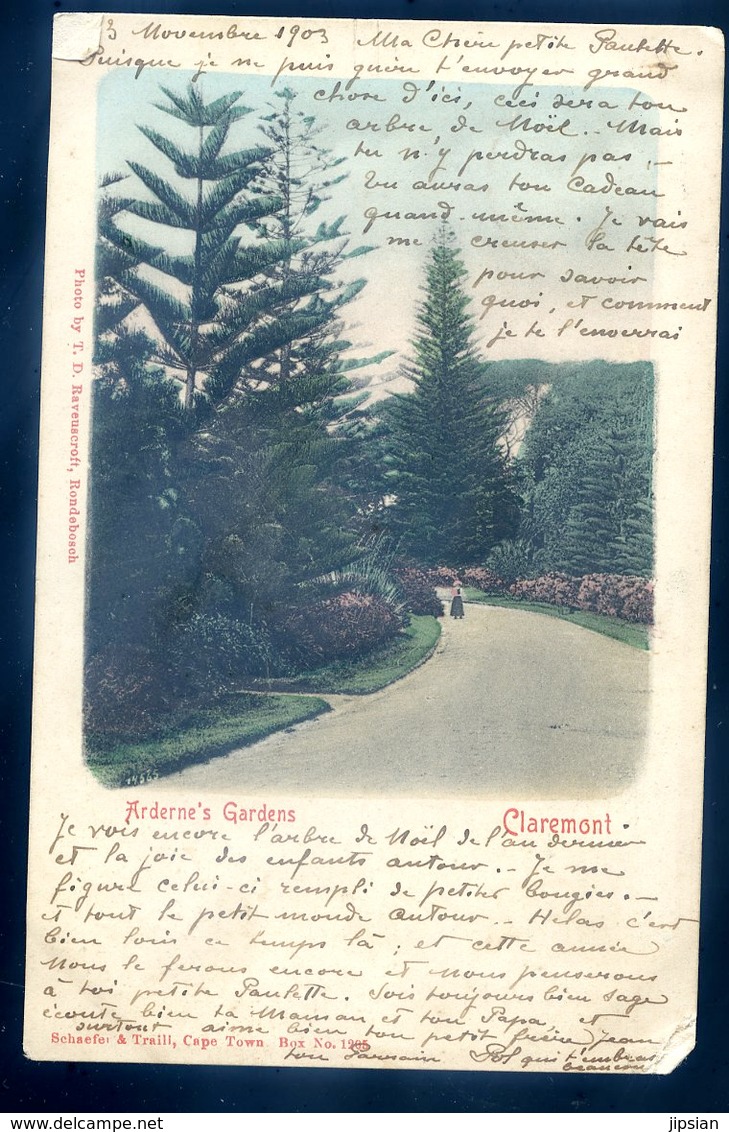 3 Novembre 1903 Ma Chère petite Paulette.
Puisque je ne puis guère t'envoyer grand
chose d'ici, ceci sera ton
arbre de Noël. - Mais
tu n'y perdras pas, -
tu auras ton Cadeau
quand-même. Je vais
me creuser la tête
pour savoir
quoi, et comment
je te l'enverrai
Photo by T. D. Ravenscroft, Rondebosch
14565
Arderne's Gardens Claremont
Je vois encore l'arbre de Noël de l'an dernier
et la joie des enfants autour. - Je me
figure celui-ci rempli de petites bougies. -
et tout le petit monde autour. - Helas c'est
bien loin ce temps là; et cette année
nous le ferons encore et nous penserons
à toi petite Paulette. Sois toujours bien sage
écoute bien ta Maman et ton Papa, et
surtout aime bien ton petit frère Jean
Schaefer & Traill, Cape Town. Box No. 1265
ton Parrain Pol qui t'embrasse
beaucoup
jipsian